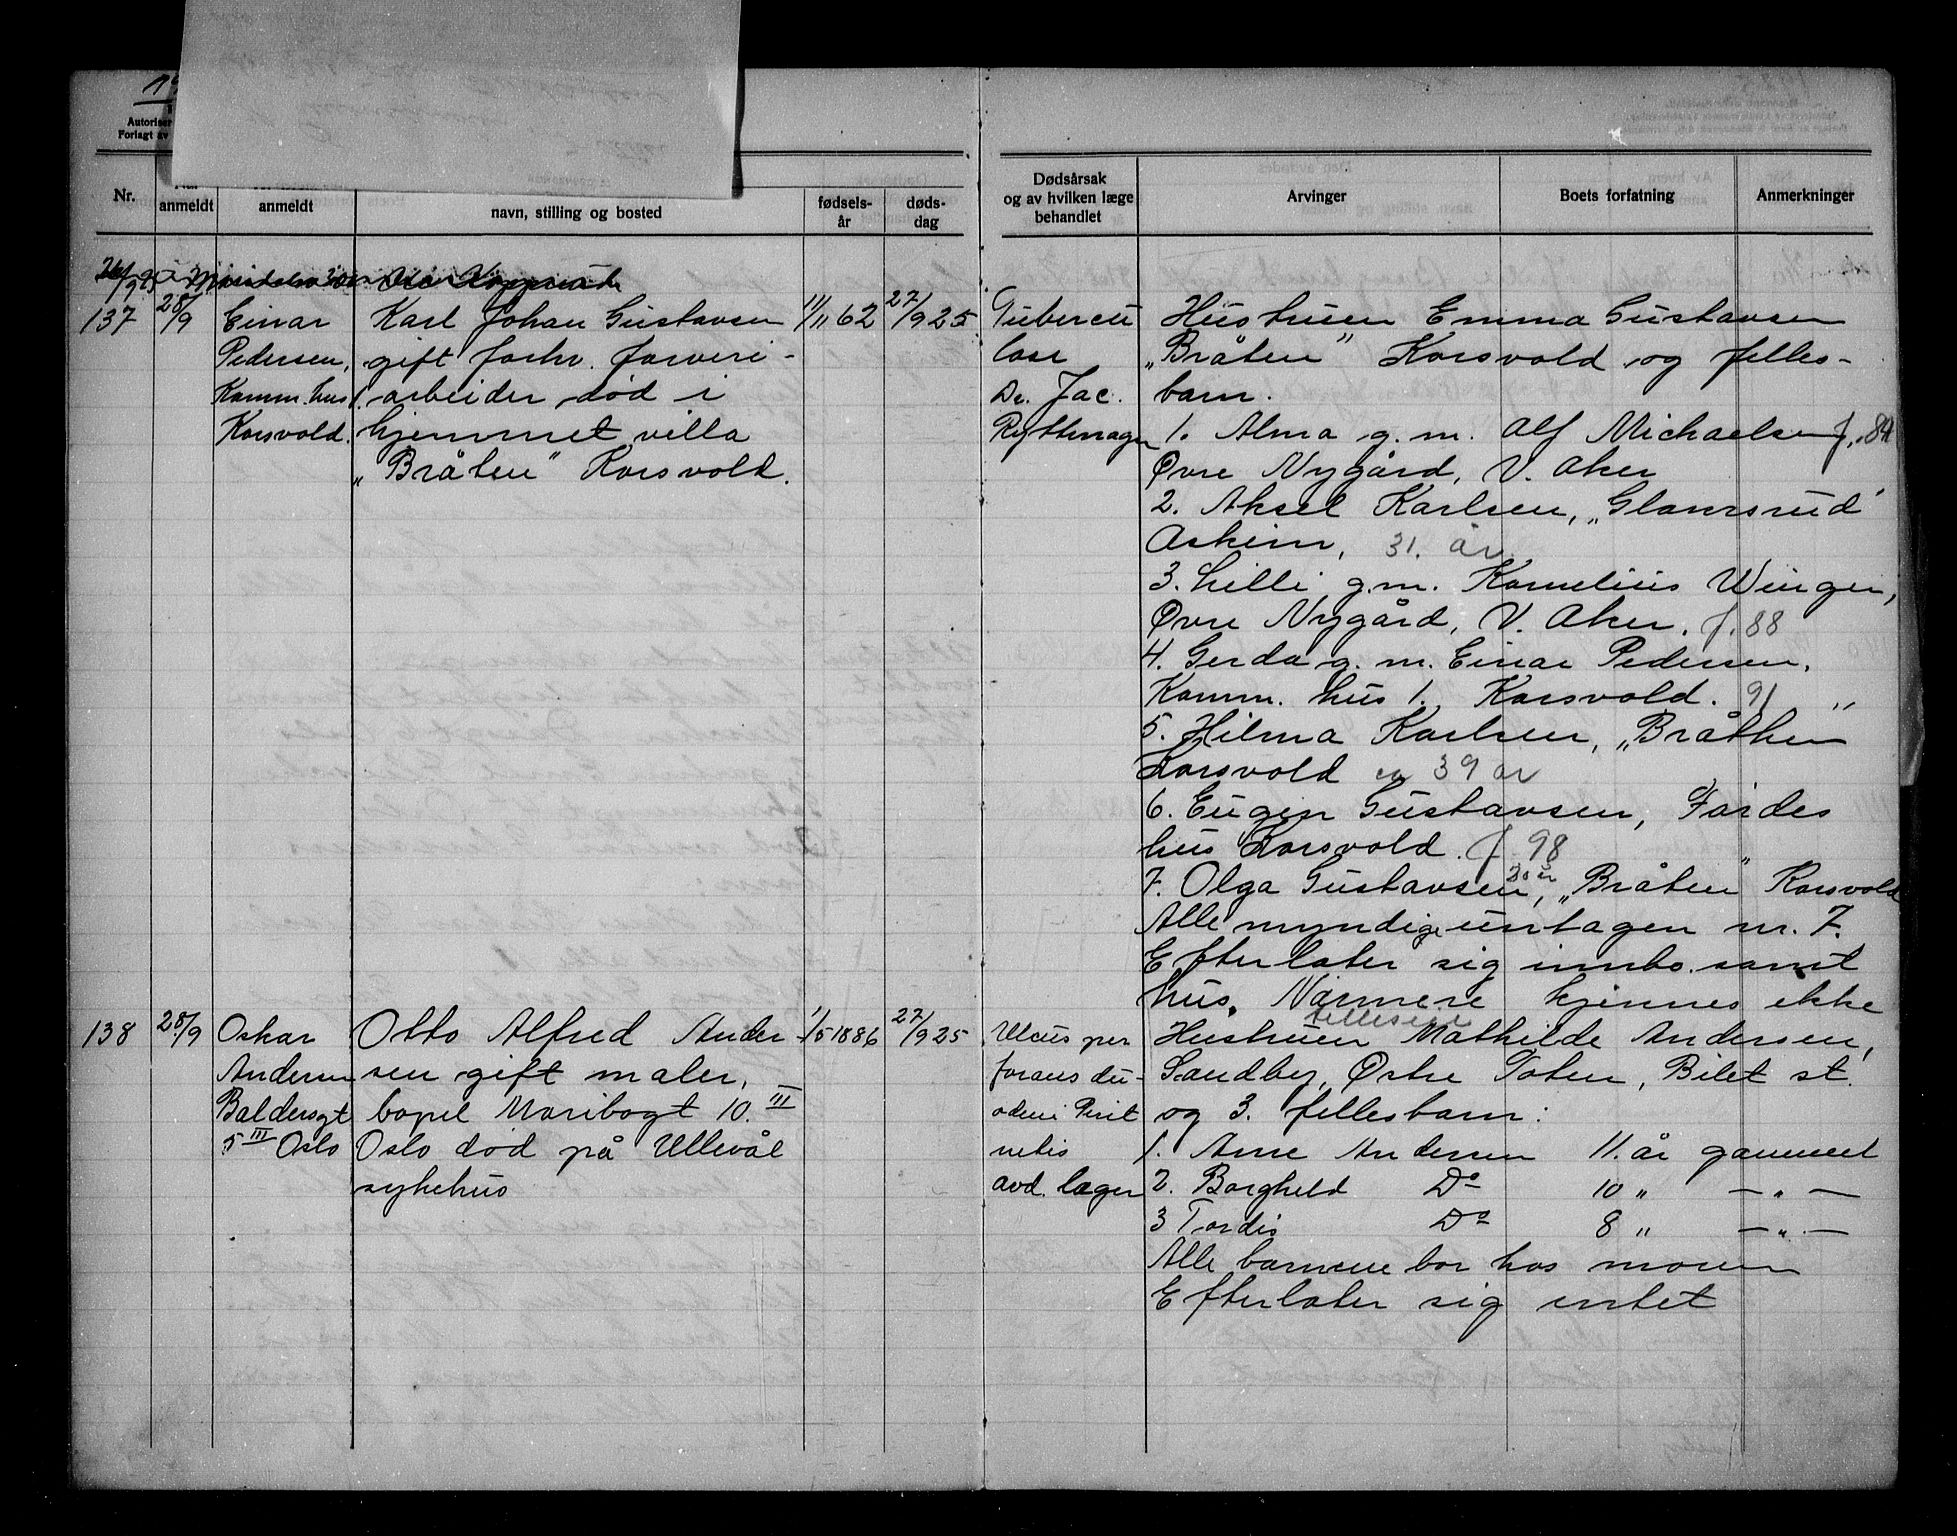 Autoriser
Forlagt av
Nr.
anmeldt
anmeldt
navn, stilling og bosted
fødsels-
år
døds-
dag
Dødsårsak
og av hvilken læge
behandlet
Arvinger
Boets forfatning
Anmerkninger
26/9 25
137
28/9
Einar
Pedersen,
Komm. hus 1.
Korsvold.
Karl Johan Gustavsen
gift forhv. farveri-
arbeider død i
hjemmet villa
„Bråten" Korsvold.
11/11 62
27/9 25
Tubercu
lose
Dr. Jac.
Ryttermager
Hustruen Emma Gustavsen
„Bråten" Korsvold og felles-
barn.
1. Alma g. m. Alf Michaelsen f. 84
Øvre Nygård, V. Aker
2. Aksel Karlsen, „Glamsrud"
Askim, 31. år
3. Lilli g.m. Kornelius Winger,
Øvre Nygård, V. Aker. f. 88
4. Gerda g. m. Einar Pedersen,
Komm. hus 1. Korsvold. 91 „
5. Hilma Karlsen, „Bråthen
Korsvold ca 39 år
6. Eugen Gustavsen, Førdes
hus Korsvold. f 98
7. Olga Gustavsen, 20 år „Bråten" Korsvold
Alle myndige untagen nr. 7.
Efterlater sig innbo samt
hus. Nærmere kjennes ikke
138
28/9
Oskar
Andersen
Baldersgt
5 III Oslo
Otto Alfred Ander
sen gift maler,
bopel Maribogt 10. III
Oslo død på Ullevål
sykehus
1/5 1886
27/9 25
Ulcus per
forans du-
odeni Perit
nitis
avd. læger
felleseie
Hustruen Mathilde Andersen,
Sandby, Østre Toten, Bilet st.
og 3. fellesbarn:
1. Arne Andersen 11. år gammel
2. Borghild Do 10 „ — „ —
3 Tordis Do 8 „ — „ —
Alle barnene bor hos moren
Efterlater sig intet